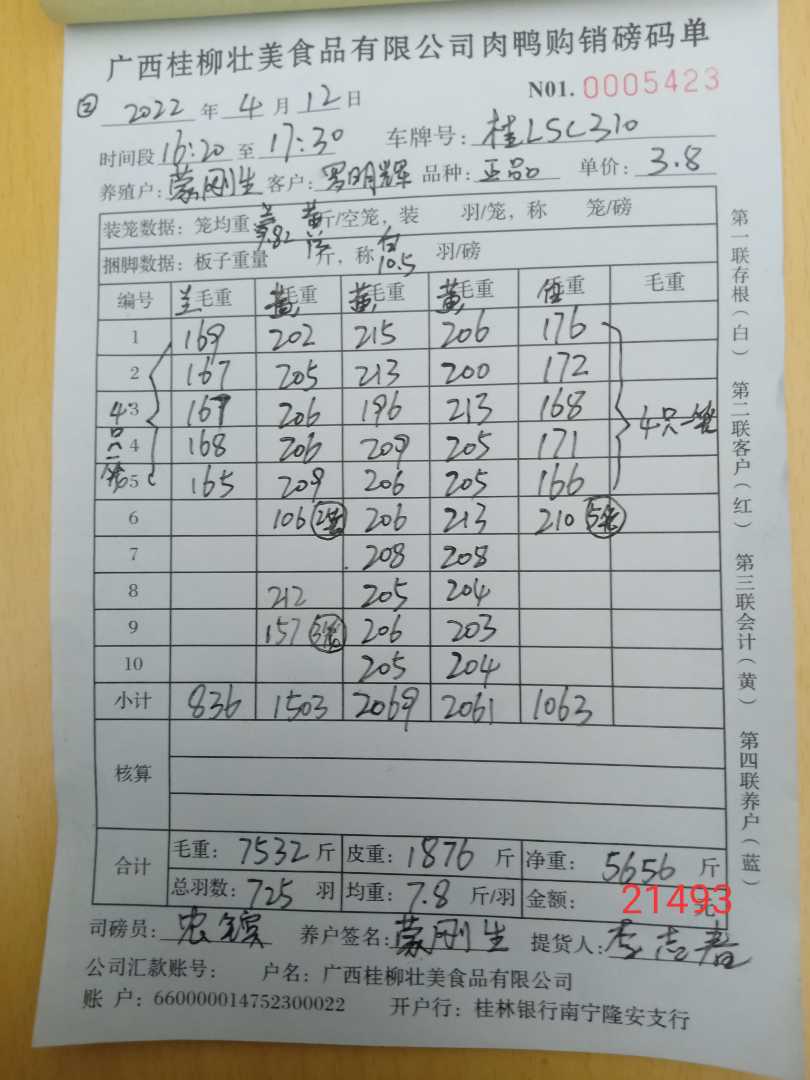 广西桂柳壮美食品有限公司肉鸭购销磅码单
② 2022 年 4 月 12 日 N01. 0005423
时间段 16:20 至 17:30 车牌号: 桂LSC310
养殖户: 蒙刚生 客户: 罗明辉 品种: 正品 单价: 3.8
装笼数据: 笼均重 9.82 黄 斤/空笼, 装 羽/笼, 称 笼/磅
捆脚数据: 板子重量 斤, 称 10.5 羽/磅
编号 兰毛重 黄毛重 黄毛重 黄毛重 毛重 毛重
1 169 202 215 206 176
2 167 205 213 200 172
3 167 206 196 213 168
4 168 206 209 205 171
5 165 209 206 205 166
4只一笼 4只一笼
6 106 2笼 206 213 210 5笼
7 208 208
8 212 205 204
9 157 3笼 206 203
10 205 204
小计 836 1503 2069 2061 1063
核算
合计 毛重: 7532 斤 皮重: 1876 斤 净重: 5656 斤
总羽数: 725 羽 均重: 7.8 斤/羽 金额: 21493 元
司磅员: 养户签名: 蒙刚生 提货人: 李志春
公司汇款账号: 户名: 广西桂柳壮美食品有限公司
账 户: 660000014752300022 开户行: 桂林银行南宁隆安支行
第一联存根(白) 第二联客户(红) 第三联会计(黄) 第四联养户(蓝)